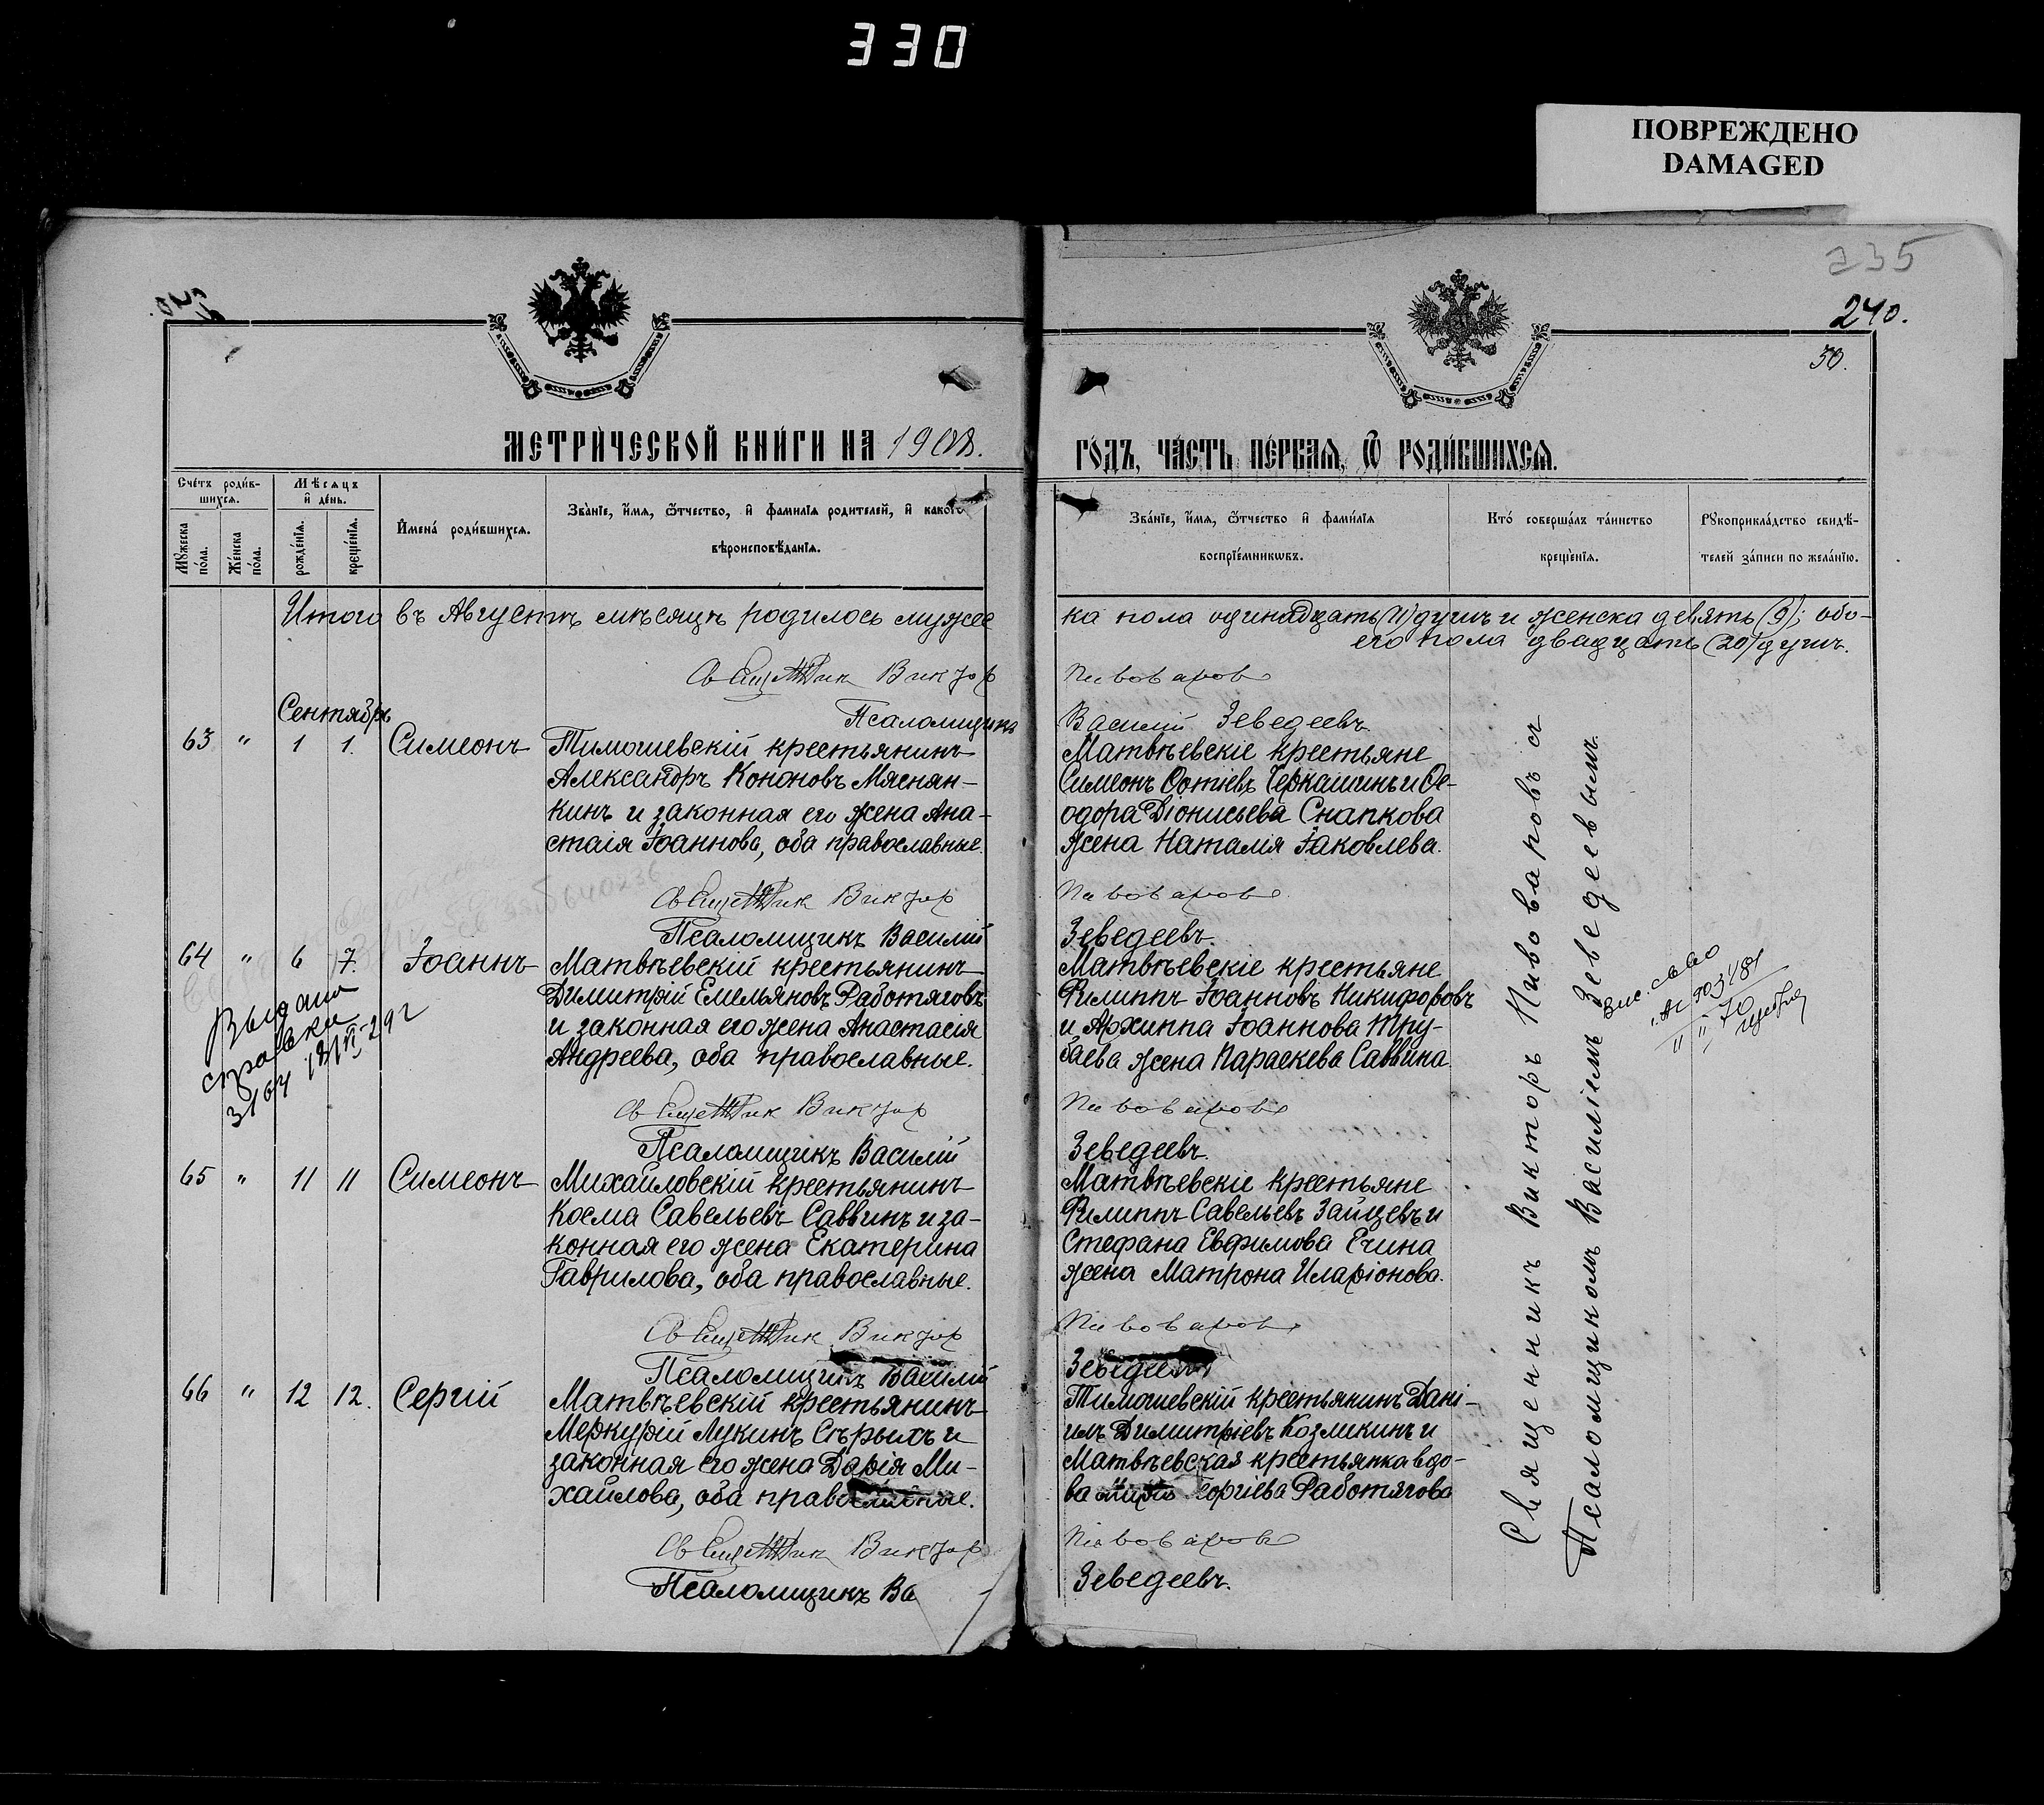 330
ПОВРЕЖДЕНО
DAMAGED
235
240.
30.
МЕТРИЧЕСКОЙ КНИГИ НА 1908.
ГОДЪ, ЧАСТЬ ПЕРВАЯ, Ѿ РОДИВШИХСЯ.
Счетъ родив-
шихся.
Мѣсяцъ
и день.
Мужеска пола.
Женска пола.
рожденія.
крещенія.
Имена родившихся.
Званіе, имя, ѿчество, и фамилія родителей, и какого
вѣроисповѣданія.
Званіе, имя, ѿчество и фамилія
воспріемниковъ.
Кто совершалъ таинство
крещенія.
Рукоприкладство свидѣ-
телей записи по желанію.
Итого въ Августѣ мѣсяцѣ родилось мужес
ка пола одинадцать (11) душъ и женска девять (9); обо-
его пола двадцать (20) душъ.
Священник Виктор
Пивоваров
Псаломщикъ
Василій Зеведеевъ.
Сентябрь
63 " 1 1. Симеонъ
Тимошевскій крестьянинъ
Александръ Кононовъ Мяснян-
кинъ и законная его жена Ана-
стасія Іоаннова, оба православные.
Матвѣевскіе крестьяне
Симеонъ Черкашинъ и Ѳе-
одора Діонисьева Снапкова
жена Наталія Іаковлева.
Священник Виктор
Пивоваров
Псаломщикъ Василій
Зеведеевъ.
64 " 6 7. Іоаннъ
Матвѣевскій крестьянинъ
Димитрій Емельяновъ Работяговъ
и законная его жена Анастасія
Андреева, оба православные.
Матвѣевскіе крестьяне
Филиппъ Іоанновъ Никифоровъ
и Архиппа Іоаннова Тру-
баева жена Параскева Саввина.
Выдана
справка
3164
Священник Виктор
Пивоваров
Псаломщикъ Василій
Зеведеевъ.
65 " 11 11 Симеонъ
Михайловскій крестьянинъ
Косма Савельевъ Саввинъ и за-
конная его жена Екатерина
Гаврилова, оба православные.
Матвѣевскіе крестьяне
Филиппъ Савельевъ Зайцевъ и
Стефана Евфимова Ечина
жена Матрона Иларіонова.
Священник Виктор
Пивоваров
Псаломщикъ Василій
Зеведеевъ
66 " 12 12. Сергій
Матвѣевскій крестьянинъ
Меркурій Лукинъ Сѣрыхъ и
законная его жена Дарія Ми-
хайлова, оба православные.
Тимошевскій крестьянинъ Дані-
илъ Димитріевъ Козликинъ и
Матвѣевская крестьянка вдо-
ва Георгіева Работягова
Священник Виктор
Пивоваров
Псаломщикъ Ва
Зеведеевъ.
Священникъ Викторъ Пивоваровъ съ
Псаломщикомъ Василіемъ Зеведеевымъ.